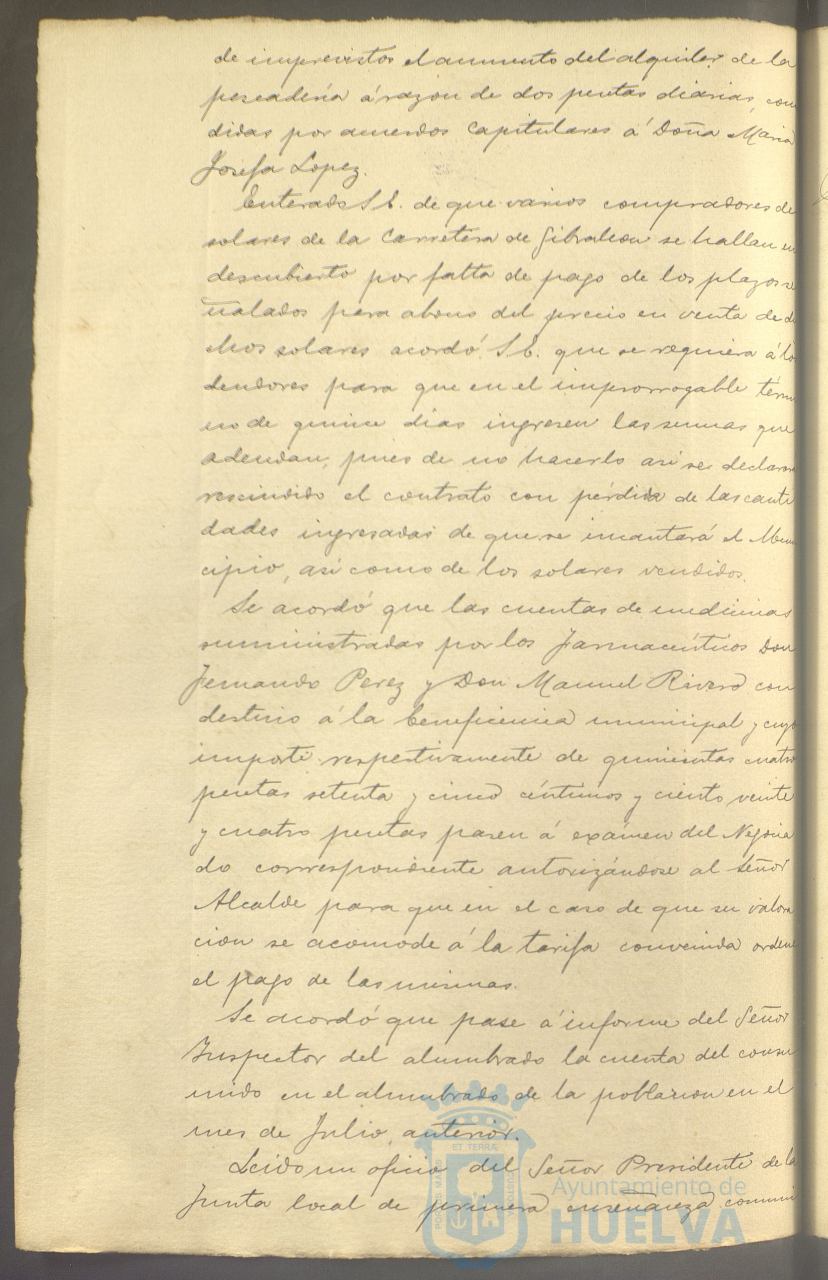 de imprevistos el aumento del alquiler de la
pescaderia á razon de dos pesetas diarias, con
didas por acuerdos capitulares á Doña Maria
Josefa Lopez.
Enterado S. E. de que varios compradores de
solares de la Carretera de Gibraleon se hallan en
descubierto por falta de pago de los plazos se
ñalados para abono del precio en venta de di
chos solares acordó S. E. que se requiera á lo
deudores para que en el improrrogable térmi
no de quince dias ingresen las sumas que
adeudan, pues de no hacerlo asi se declara
rescindido el contrato con pérdida de las canti
dades ingresadas de que se incautará el Muni
cipio, asi como de los solares vendidos.
Se acordó que las cuentas de medicinas
suministradas por los Farmacéuticos Don
Fernando Perez y Don Manuel Rivero con
destino á la beneficencia municipal y cuyo
importe respectivamente de quinientas cuatro
pesetas setenta y cinco céntimos y ciento veinte
y cuatro pesetas pasen á exámen del Negocia
do correspondiente autorizándose al Señor
Alcalde para que en el caso de que su valora
cion se acomode á la tarifa convenida ordene
el pago de las mismas.
Se acordó que pase á informe del Señor
Inspector del alumbrado la cuenta del consu
mido en el alumbrado de la poblacion en el
mes de Julio anterior.
Leido un oficio del Señor Presidente de la
Junta local de primera enseñanza comuni
PORTUS MARIS ET TERRÆ CUSTODIA
Ayuntamiento de
HUELVA